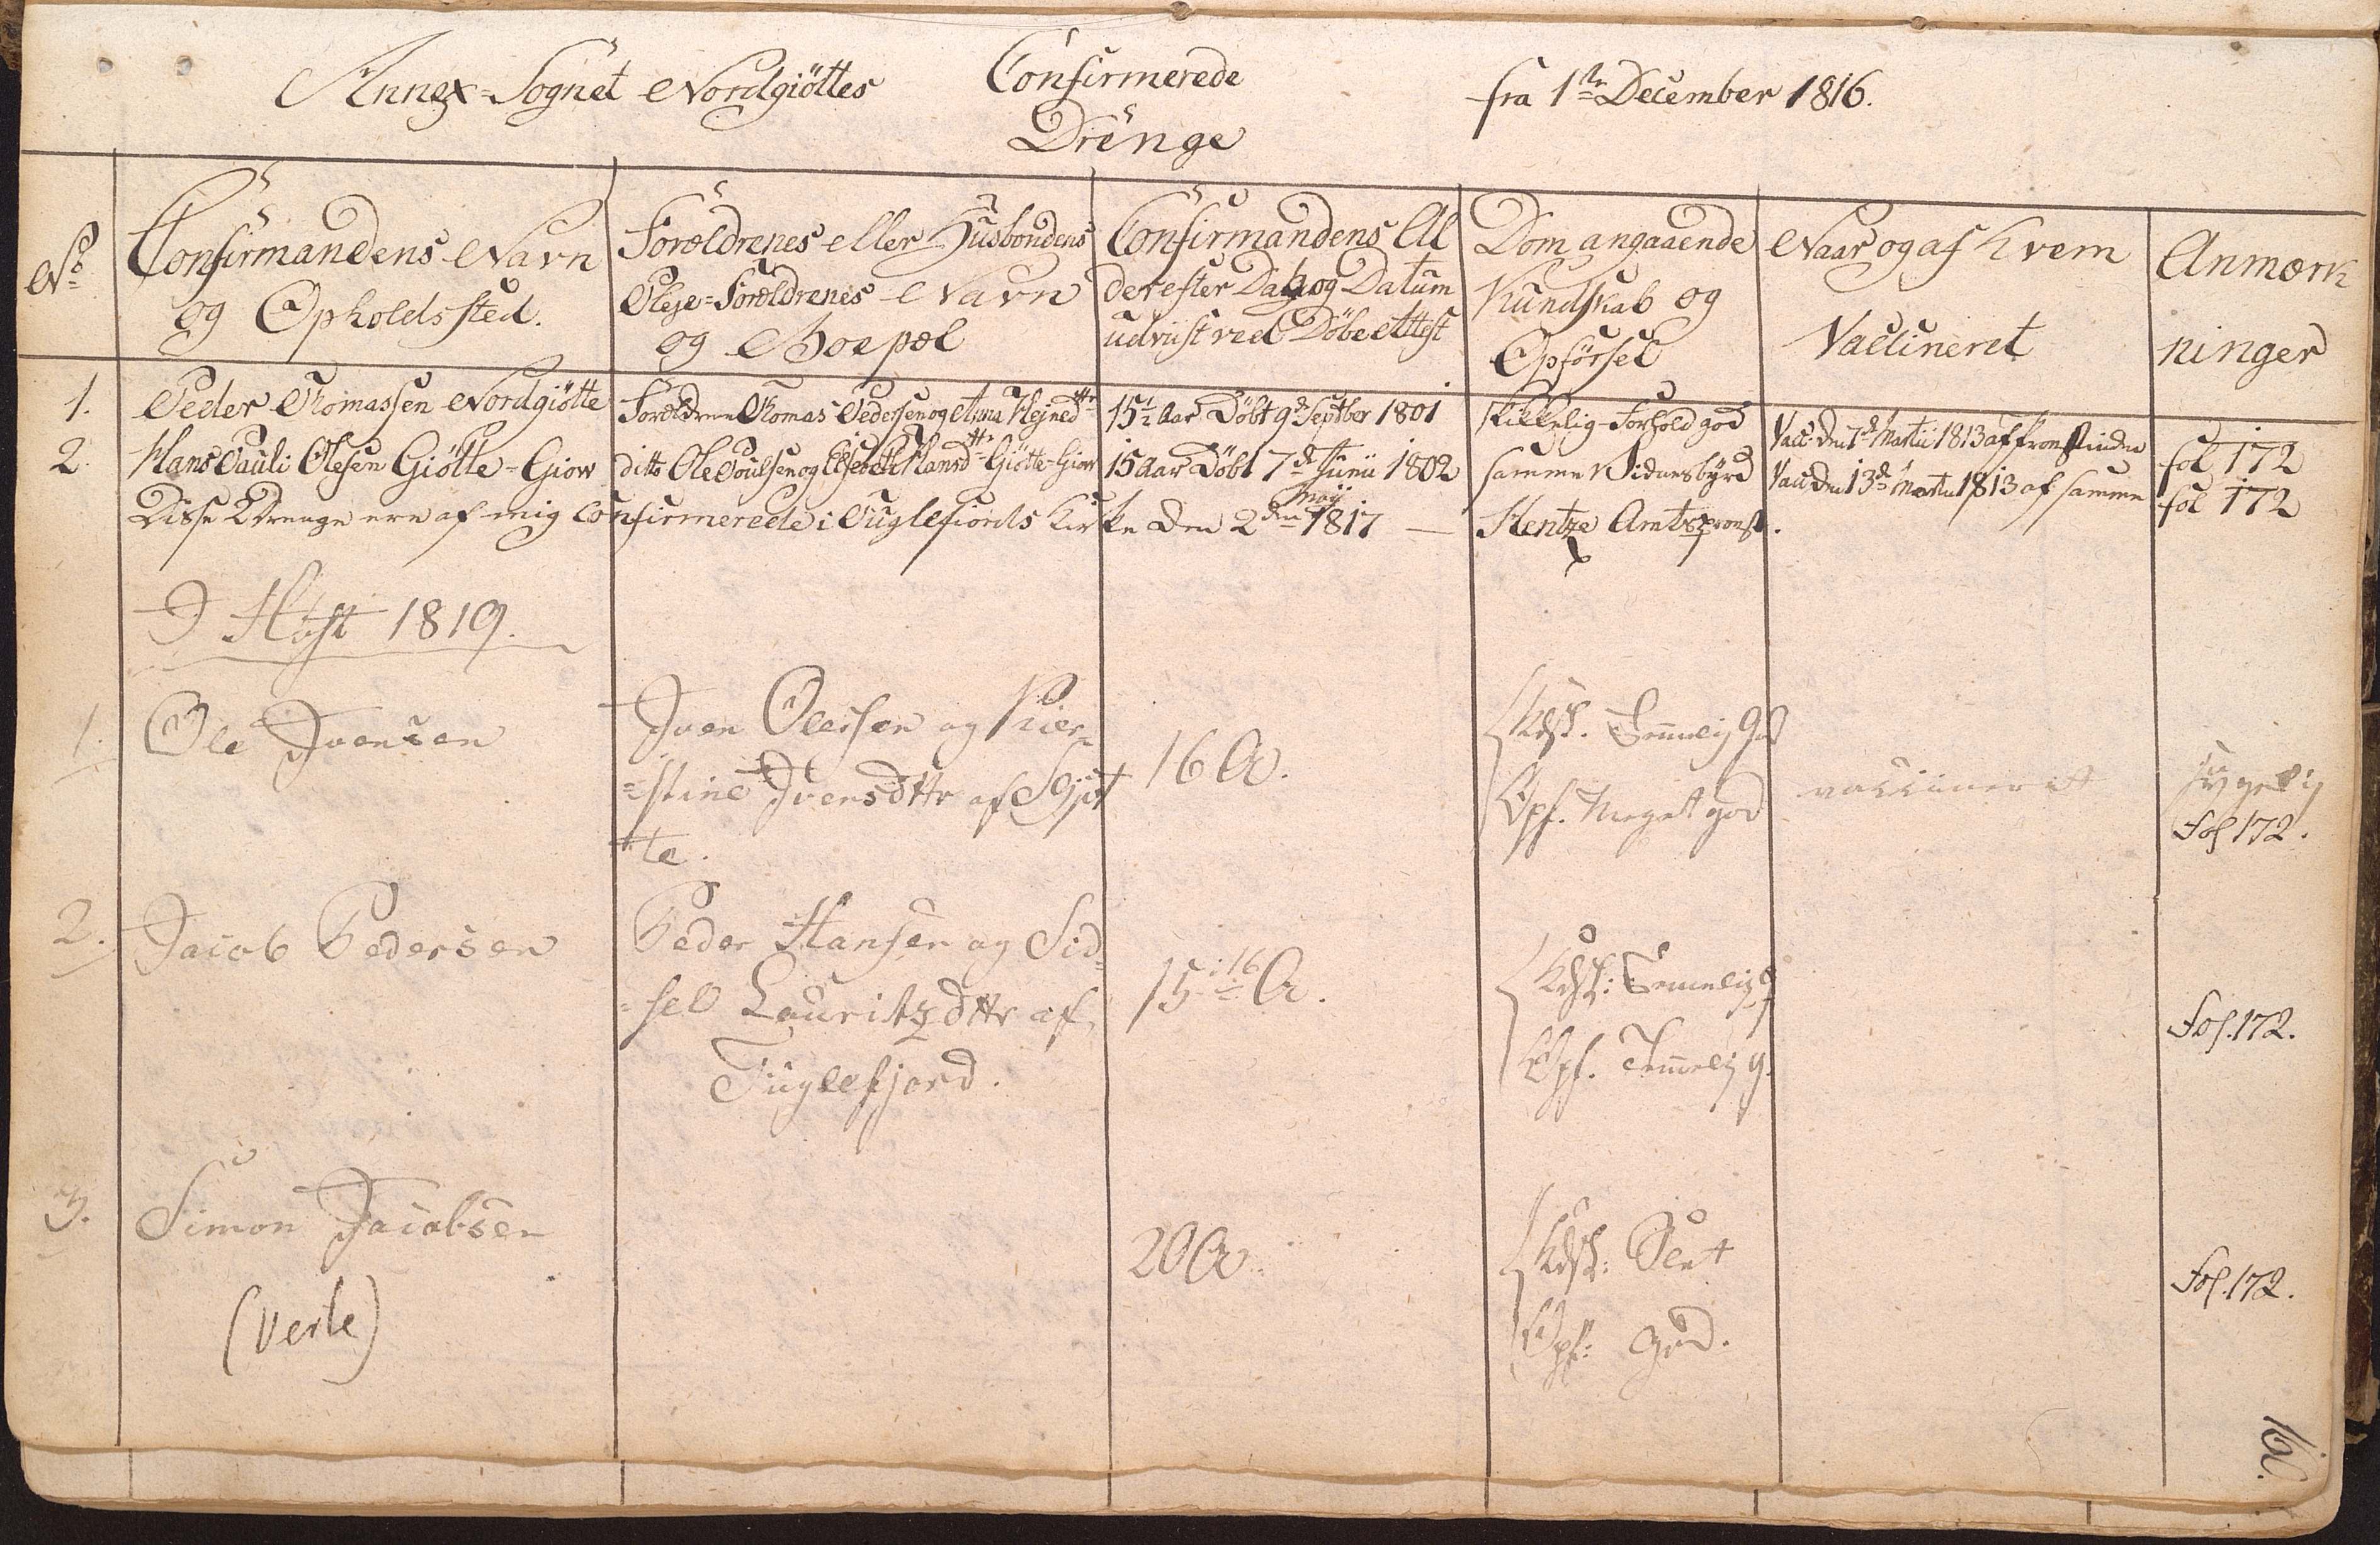 Annex=Sognet Nordgiöttes Confirmerede fra 1te December 1816.
Drenge
No Confirmandens Navn Forældrenes eller Husbondens Confirmandens Al Dom angaaende Naar og af hvem Anmærk
og Opholdssted. Pleje=Forældrenes Navn der efter Dag og Datum Kundskab og Vaccineret ninger
og Boepæl udviist ved Döbe Attest Opförsel
1. Peder Thomassen Nordgiötte Forældrene Thomas Pedersen og Anna Hejnedttr 15½ Aar Döbt 9de Septber 1801 skikkelig Forhold god Vacc. den 7de Martii 1813 af Provstinden fol 172
2. Hans Pauli Olesen Giötte=Giow ditto Ole Poulsen og Elsebeth Hansdttr Giötte=Giow 15 Aar Döbt 7de Junii 1802 samme Vidnesbyrd Vacc den 13de Martii 1813 af samme fol 172
Disse 2 Drenge ere af mig confirmerede i Fuglefiords Kirke den 2den Maij 1817 — Hentze Amtsprovst.
I Höst 1819.
1. Ole Ivensen Iven Olessen og Kier=
=stine Ivensdttr af Gjöt
tte.
16 A.
Kdsk. Temmelig god
Opf. Meget god
vaccineret
sygelig
Fol 172.
2. Jacob Pedersen Peder Hansen og Sid=
=sel Lauritzdttr af
Fuglefjord.
15 : 16 A.
Kdsk: Temmelig g
Opf. Temelig g.
Fol. 172.
3. Simon Jacobsen
(Verle)
20 A.
Kdsk: Slet
Opf: god.
Fol. 172.
16.